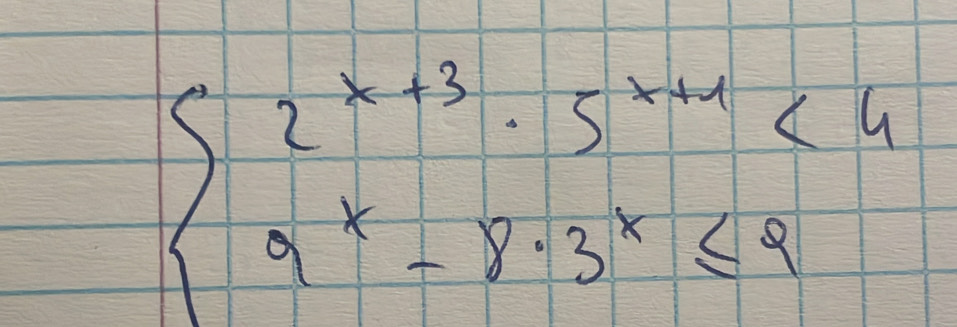 2^{x+3} · 5^{x+1} < 4
9^x - 8 · 3^x ≤ 9